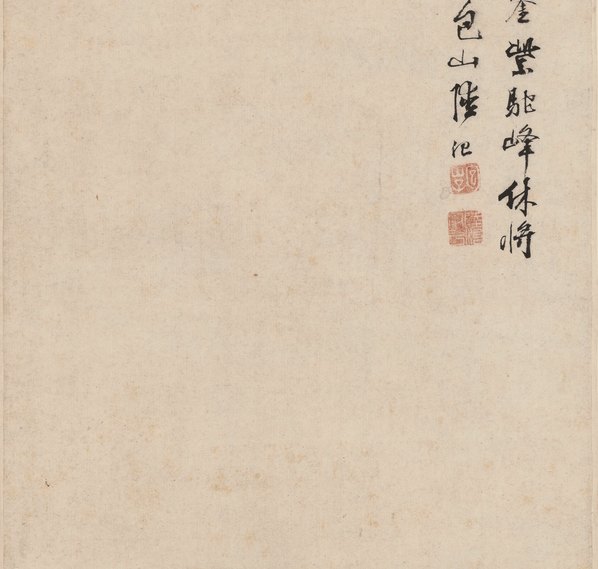 紫駝峰休將
包山陸治